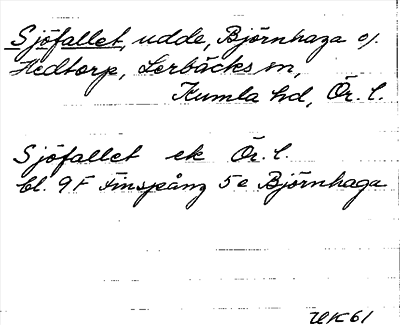 Sjöfallet, udde, Björnhaga o/.
Hedtorp, Lerbäcks sn,
Kumla hd, Ör. l.
Sjöfallet ek Ör. l.
bl. 9 F Finspång 5 e Björnhaga
UK 61